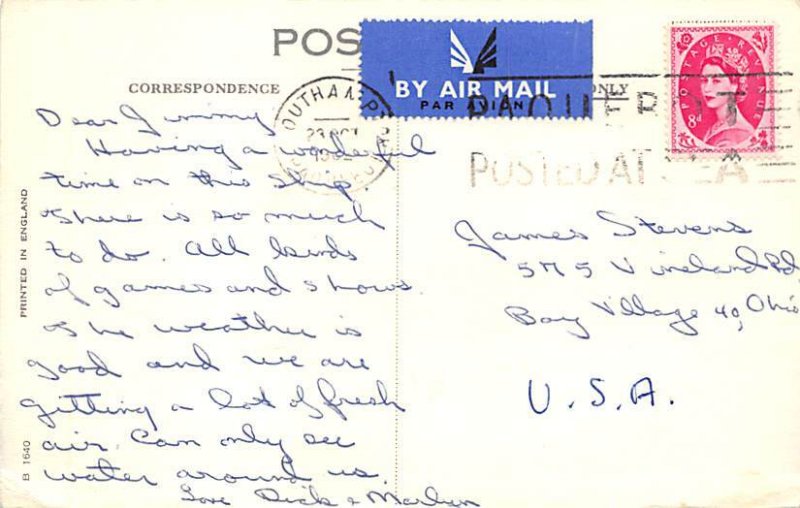 POS
CORRESPONDENCE
ONLY
BY AIR MAIL
PAR AVION
POSTAGE REVENUE
8d
PAQUEBOT
POSTED AT SEA
Dear Jimmy
Having a wonderful
time on this ship
There is so much
to do. All kinds
of games and shows.
The weather is
good and we are
getting a lot of fresh
air. Can only see
water around us.
Love Dick & Marlyn
James Stevens
Vineland Rd
Bay Village 40, Ohio
U.S.A.
PRINTED IN ENGLAND
B 1640